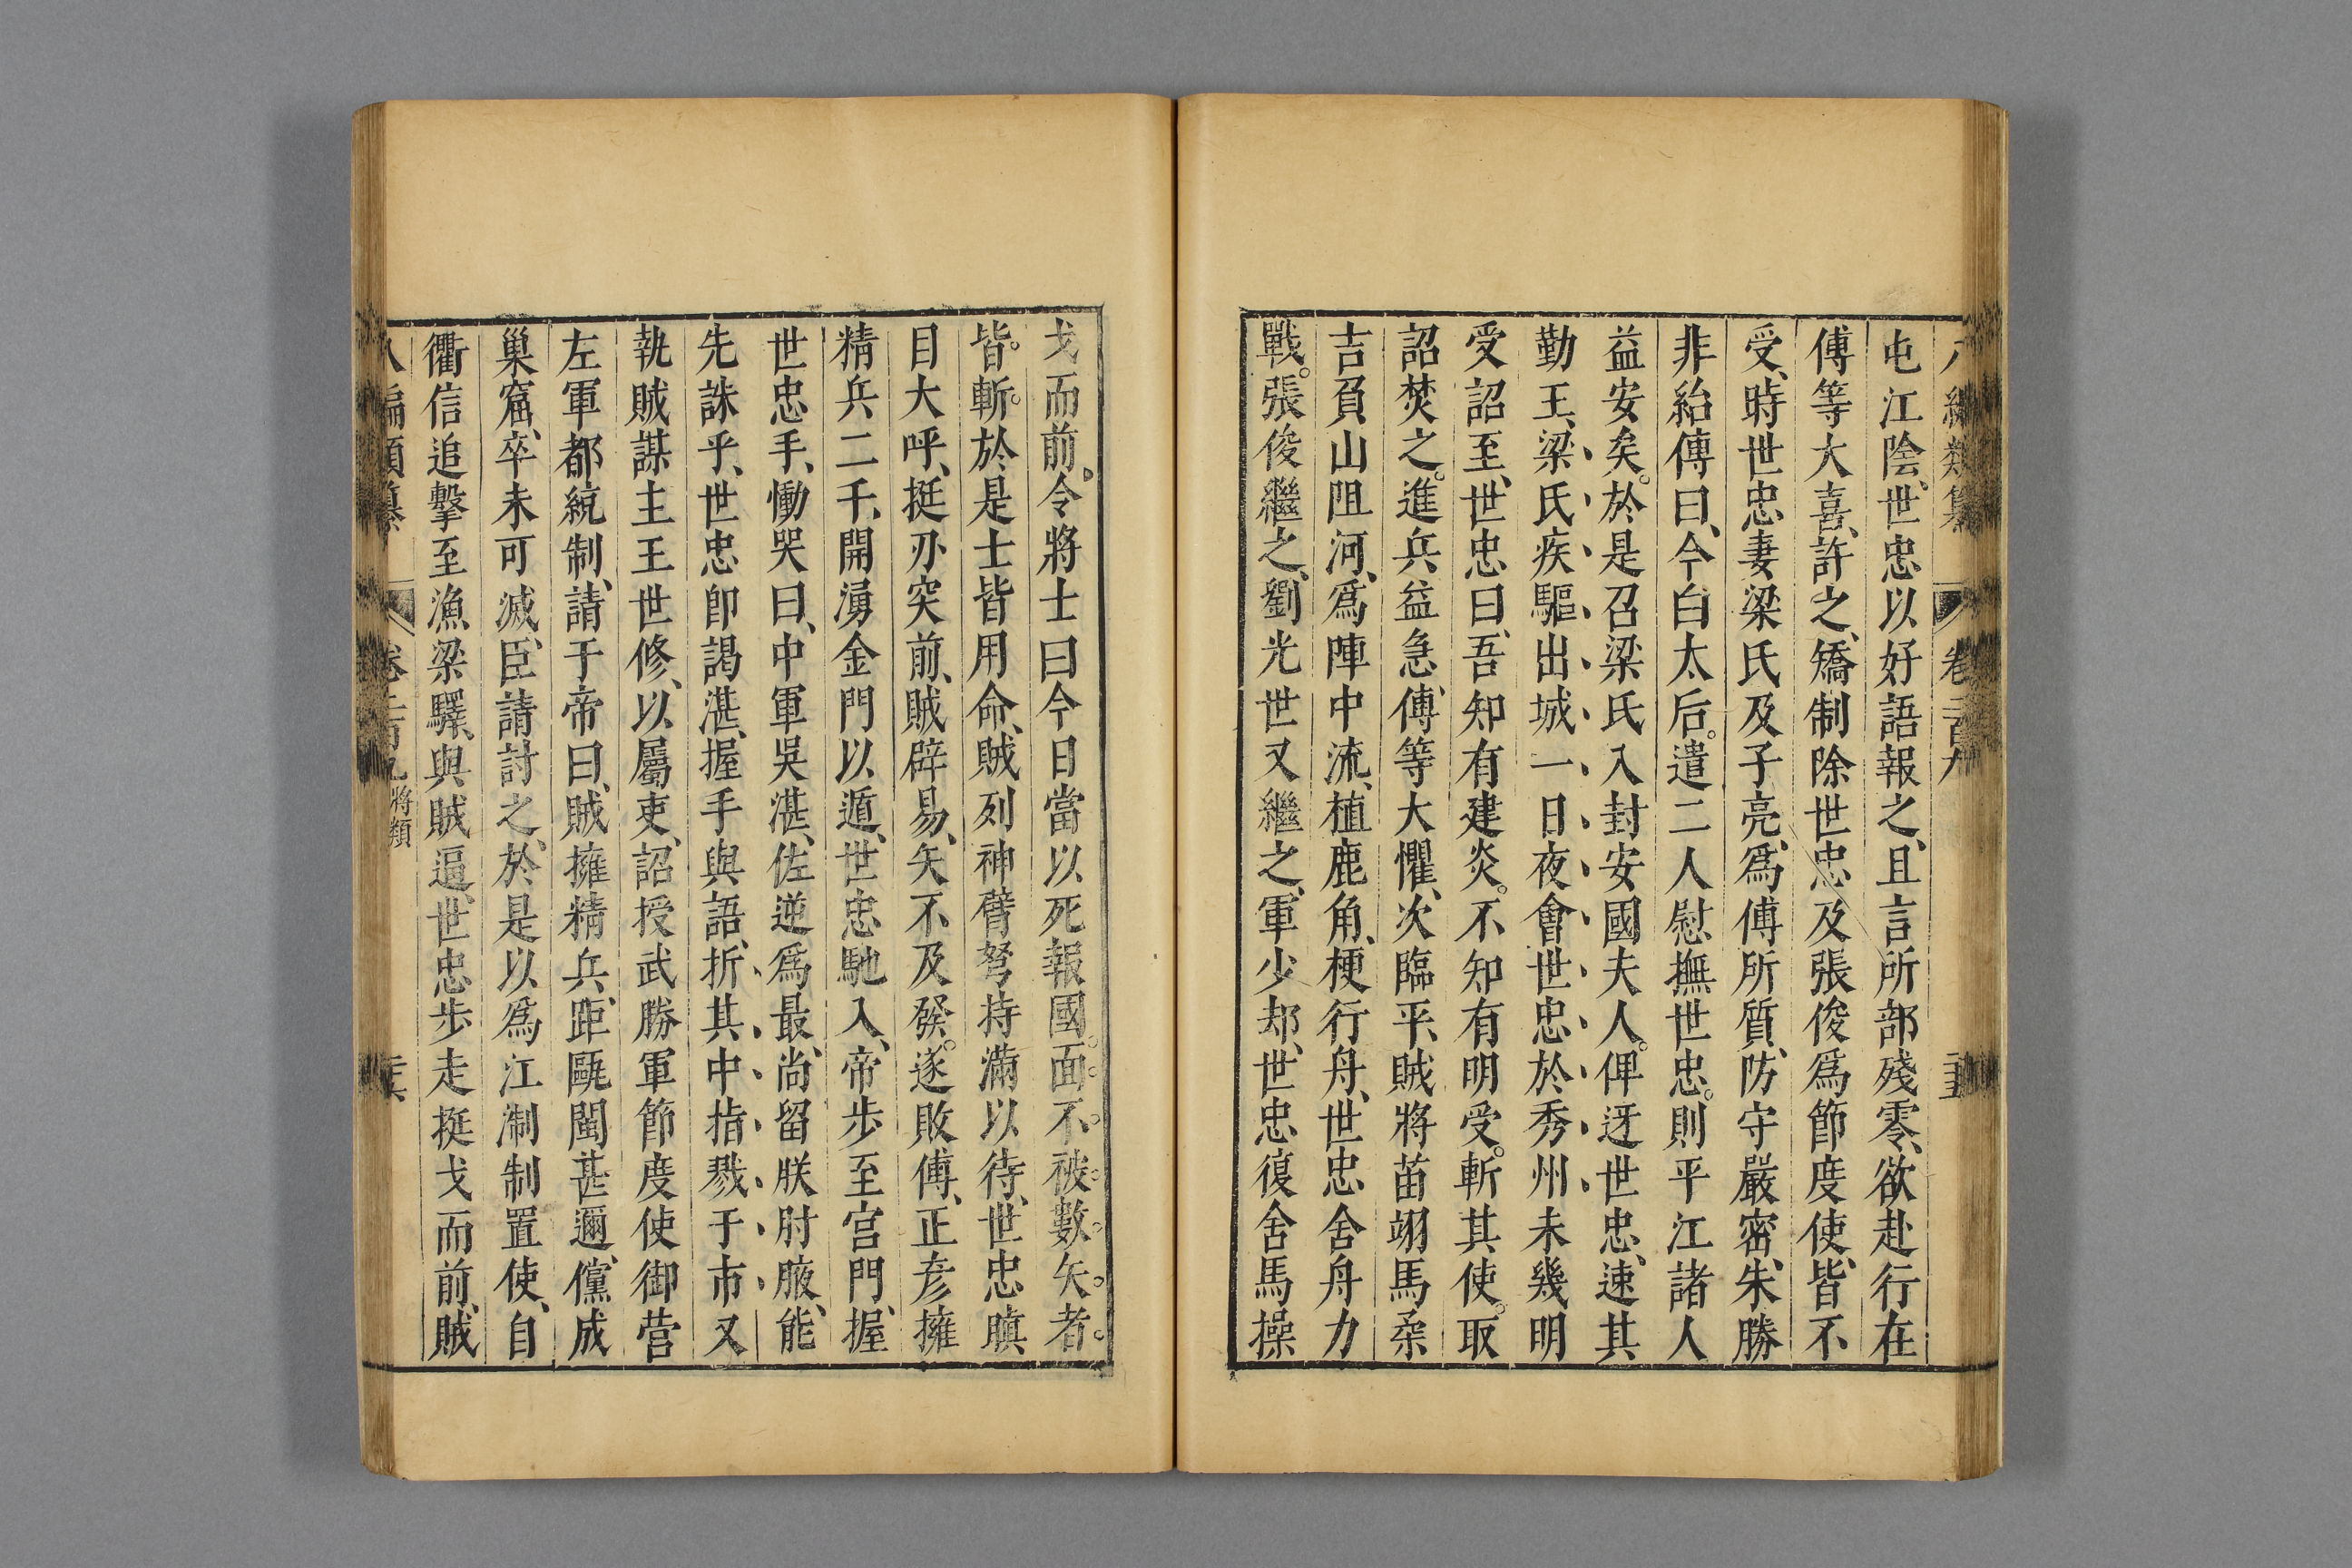 屯江陰、世忠以好語報之、且言所部殘零、欲赴行在
傅等大喜、許之、矯制除世忠及張俊爲節度使、皆不
受、時世忠妻梁氏及子亮、爲傅所質、防守嚴密、朱勝
非紿傅曰、今白太后。遣二人慰撫世忠。則平江諸人
益安矣。於是召梁氏入封安國夫人。俾迓世忠、速其
勤王、梁氏疾驅出城一日夜會世忠於秀州未幾明
受詔至、世忠曰、吾知有建炎。不知有明受。斬其使。取
詔焚之。進兵益急、傅等大懼、次臨平、賊將苗翊馬柔
吉負山阻河、爲陣中流、植鹿角、梗行舟、世忠舍舟力
戰。張俊繼之、劉光世又繼之、軍少却、世忠復舍馬操
戈而前。令將士曰今日當以死報國。面。不。被。數。矢。者。
皆。斬。於是士皆用命、賊列神臂弩持滿以待、世忠瞋
目大呼、挺刃突前、賊辟易、矢不及發。遂敗傅、正彥擁
精兵二千、開湧金門以遁、世忠馳入、帝步至宮門、握
世忠手、慟哭曰、中軍吳湛、佐逆爲最、尚留朕肘腋、能
先誅乎、世忠卽謁湛、握手與語、折其中指戮于市又
執賊謀主王世修、以屬吏、詔授武勝軍節度使御營
左軍都統制、請于帝曰、賊擁精兵、距甌閩甚邇、儻成
巢窟、卒未可滅、臣請討之、於是以爲江淛制置使、自
衢信追擊至漁梁驛、與賊遇、世忠步走挺戈而前、賊
編類纂 卷 將類